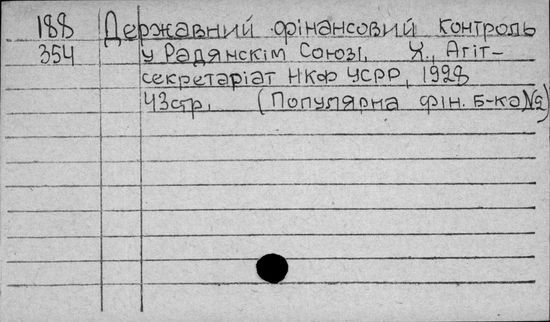 188 Державний фінансовий контроль
354 у Радянскім Союзі. Х., Агіт-
секретаріат НКФ УСРР, 1928
43стр. (Популярна фін. б-ка)